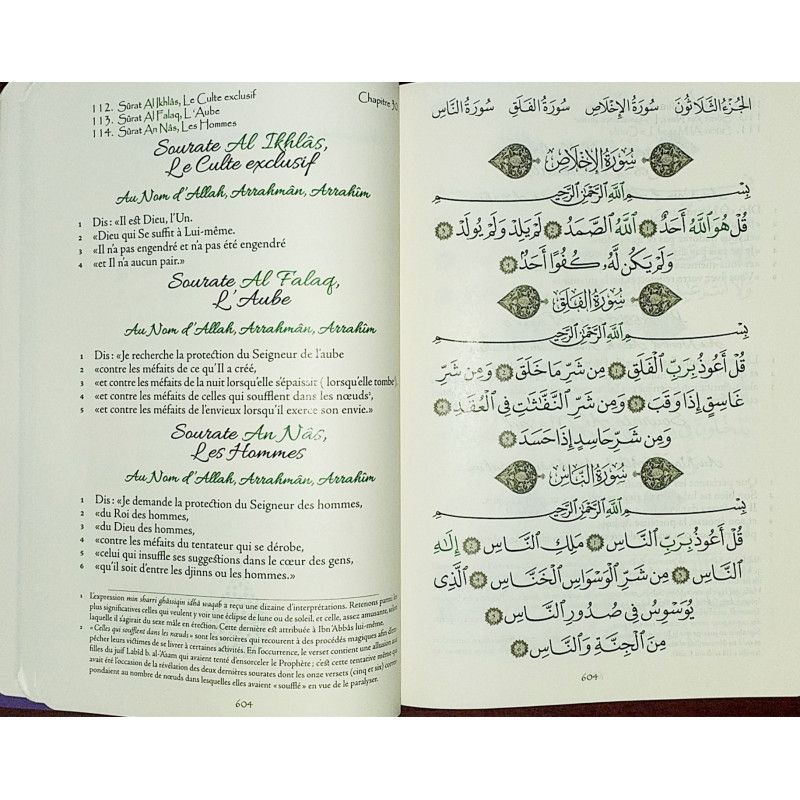 112. Sûrat Al Ikhlâs, Le Culte exclusif
113. Sûrat Al Falaq, L'Aube
114. Sûrat An Nâs, Les Hommes
Chapitre 30
Sourate Al Ikhlâs,
Le Culte exclusif
Au Nom d'Allah, Arrahmân, Arrahîm
1 Dis : «Il est Dieu, l'Un.
2 «Dieu qui Se suffit à Lui-même.
3 «Il n'a pas engendré et n'a pas été engendré
4 «et Il n'a aucun pair.»
Sourate Al Falaq,
L'Aube
Au Nom d'Allah, Arrahmân, Arrahîm
1 Dis : «Je recherche la protection du Seigneur de l'aube
2 «contre les méfaits de ce qu'Il a créé,
3 «et contre les méfaits de la nuit lorsqu'elle s'épaissit ( lorsqu'elle tombe¹),
4 «et contre les méfaits de celles qui soufflent dans les nœuds²,
5 «et contre les méfaits de l'envieux lorsqu'il exerce son envie.»
Sourate An Nâs,
Les Hommes
Au Nom d'Allah, Arrahmân, Arrahîm
1 Dis : «Je demande la protection du Seigneur des hommes,
2 «du Roi des hommes,
3 «du Dieu des hommes,
4 «contre les méfaits du tentateur qui se dérobe,
5 «celui qui insuffle ses suggestions dans le cœur des gens,
6 «qu'il soit d'entre les djinns ou les hommes.»
1 L'expression min sharri ghâssiqin idhâ waqab a reçu une dizaine d'interprétations. Retenons parmi les
plus significatives celles qui veulent y voir une éclipse de lune ou de soleil, et celle, assez amusante, selon
laquelle il s'agirait du sexe mâle en érection. Cette dernière est attribuée à Ibn 'Abbâs lui-même.
2 « Celles qui soufflent dans les nœuds» sont les sorcières qui recourent à des procédés magiques afin d'em-
pêcher leurs victimes de se livrer à certaines activités. En l'occurrence, le verset contient une allusion aux
filles du juif Labîd b. al-'Asam qui avaient tenté d'ensorceler le Prophète ; c'est cette tentative même qui
avait été l'occasion de la révélation des deux dernières sourates dont les onze versets (cinq et six) corres-
pondaient au nombre de nœuds dans lesquelles elles avaient « soufflé » en vue de le paralyser.
604
الجُزْءُ الثَّلَاثُونَ سُورَةُ الإِخْلَاصِ سُورَةُ الفَلَقِ سُورَةُ النَّاسِ
سُورَةُ الإِخْلَاصِ
بِسْمِ ٱللَّهِ ٱلرَّحْمَٰنِ ٱلرَّحِيمِ
قُلْ هُوَ ٱللَّهُ أَحَدٌ ١ ٱللَّهُ ٱلصَّمَدُ ٢ لَمْ يَلِدْ وَلَمْ يُولَدْ ٣
وَلَمْ يَكُن لَّهُۥ كُفُوًا أَحَدٌۢ ٤
سُورَةُ الفَلَقِ
بِسْمِ ٱللَّهِ ٱلرَّحْمَٰنِ ٱلرَّحِيمِ
قُلْ أَعُوذُ بِرَبِّ ٱلْفَلَقِ ١ مِن شَرِّ مَا خَلَقَ ٢ وَمِن شَرِّ
غَاسِقٍ إِذَا وَقَبَ ٣ وَمِن شَرِّ ٱلنَّفَّٰثَٰتِ فِى ٱلْعُقَدِ ٤
وَمِن شَرِّ حَاسِدٍ إِذَا حَسَدَ ٥
سُورَةُ النَّاسِ
بِسْمِ ٱللَّهِ ٱلرَّحْمَٰنِ ٱلرَّحِيمِ
قُلْ أَعُوذُ بِرَبِّ ٱلنَّاسِ ١ مَلِكِ ٱلنَّاسِ ٢ إِلَٰهِ
ٱلنَّاسِ ٣ مِن شَرِّ ٱلْوَسْوَاسِ ٱلْخَنَّاسِ ٤ ٱلَّذِى
يُوَسْوِسُ فِى صُدُورِ ٱلنَّاسِ ٥
مِنَ ٱلْجِنَّةِ وَٱلنَّاسِ ٦
604